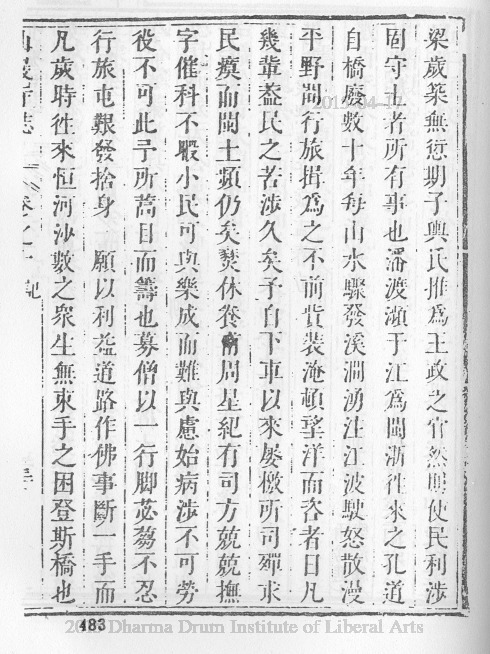 梁歲築無愆期子輿氏推為王政之首然則使民利涉
固守土者所有事也潘渡瀕于江為閩浙徃來之孔道
自橋廢數十年每山水驟發溪澗湧注江波駛怒散漫
平野間行旅揖為之不前貲裝淹頓望洋而咨者日凡
幾輩葢民之苦涉久矣予自下車以來屡檄所司殫求
民瘼而閩土頻仍矣燹休養甫周星紀有司方兢兢撫
字催科不暇小民可與樂成而難與慮始病涉不可勞
役不可此予所蒿目而籌也募僧以一行脚苾蒭不忍
行旅屯艱發捨身一願以利益道路作佛事斷一手而
凡歲時徃來恒河沙數之衆生無束手之困登斯橋也
寺志 卷之 記
483
Dharma Drum Institute of Liberal Arts